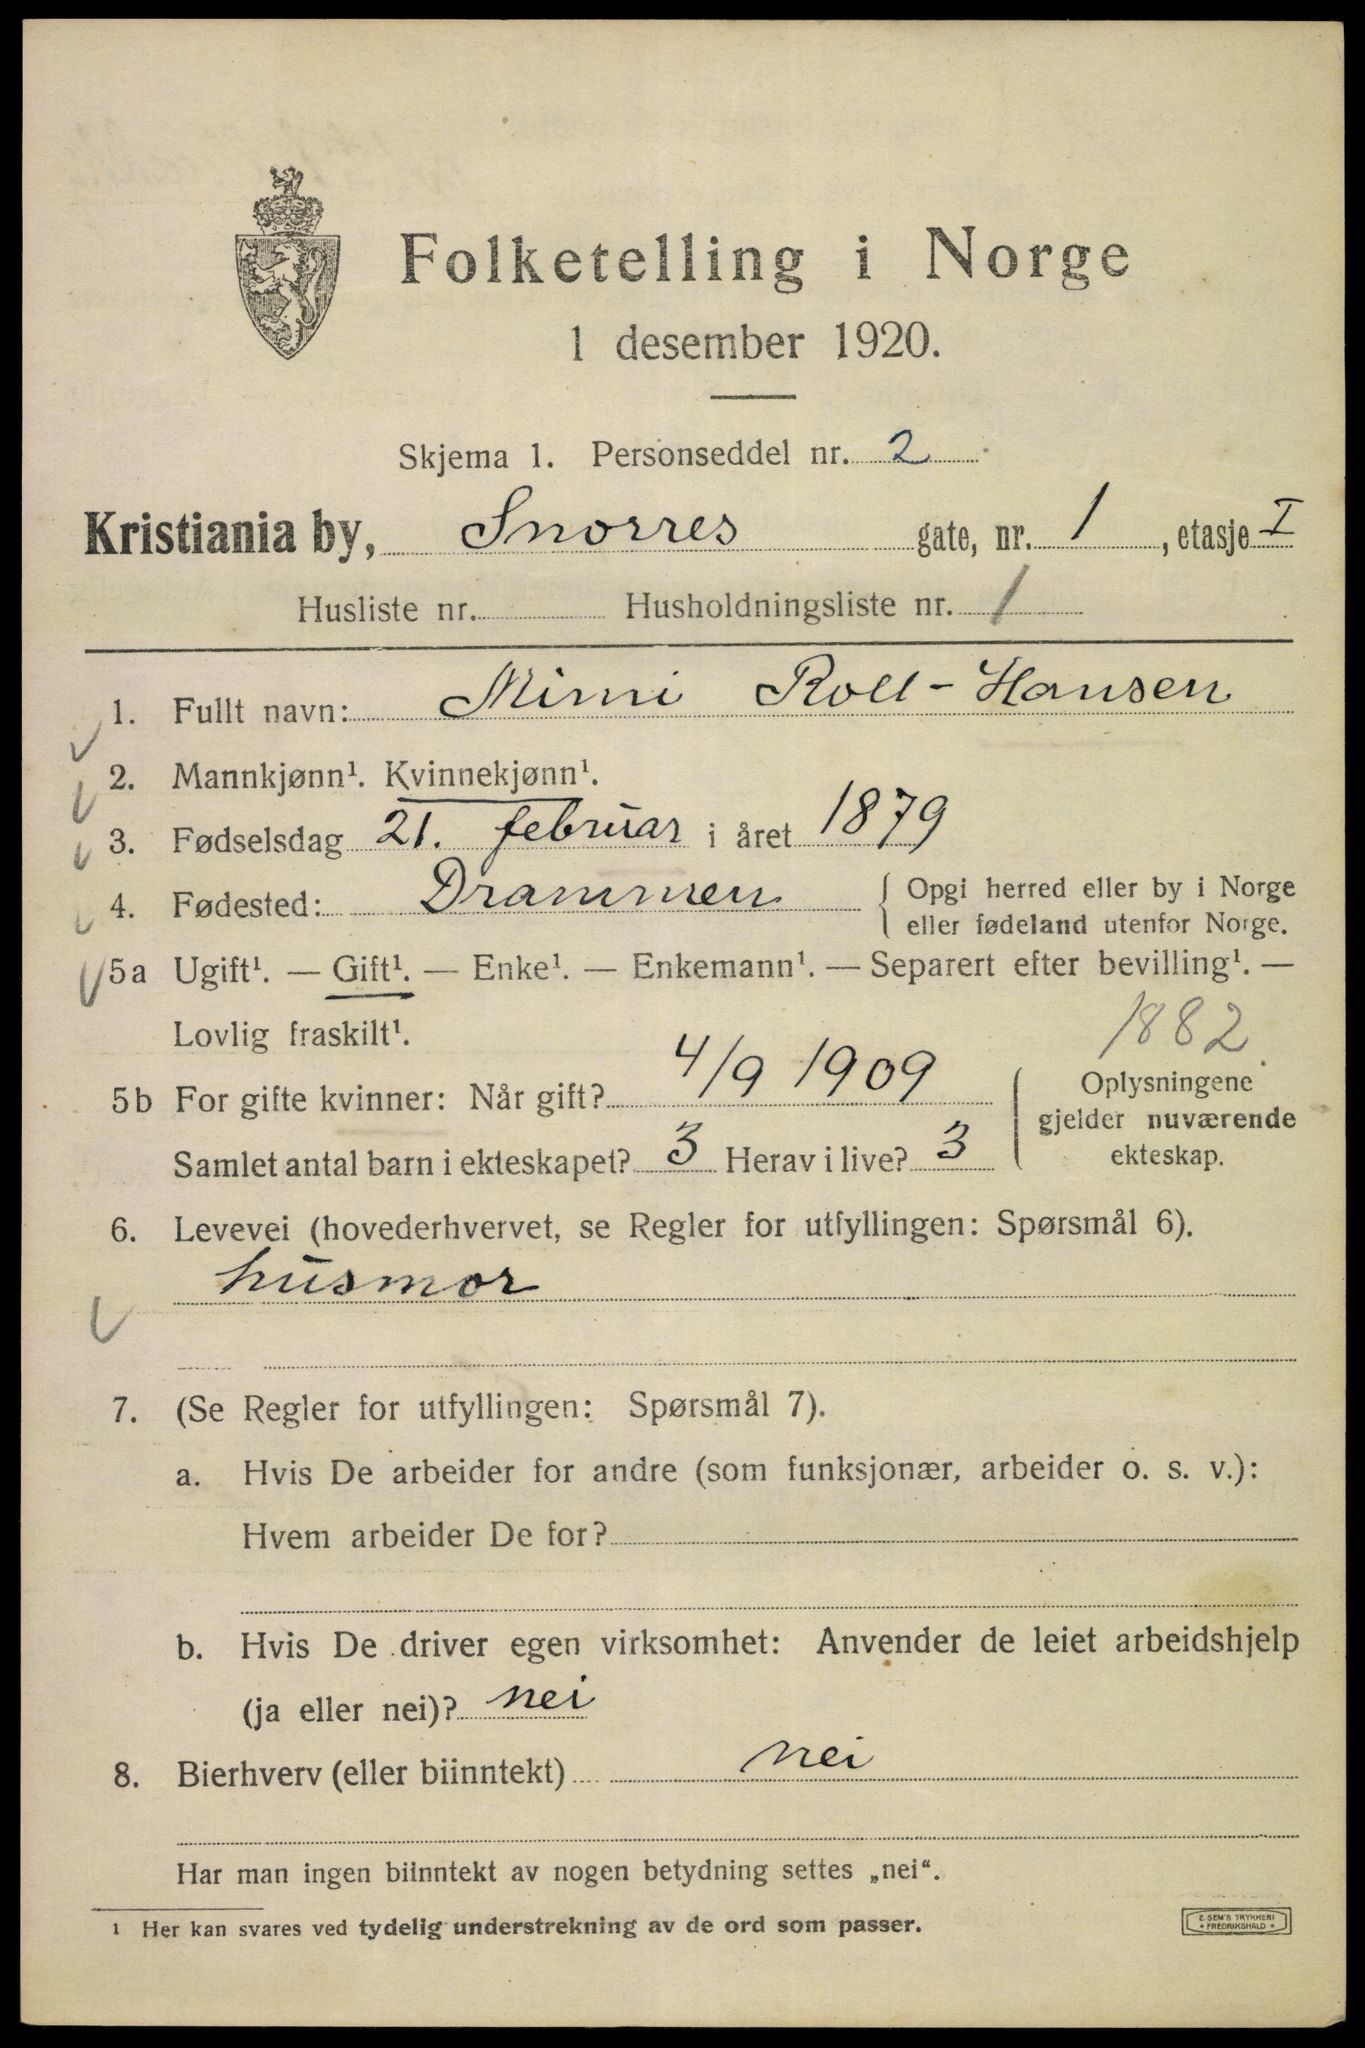 Folketelling i Norge
1 desember 1920.
Skjema 1. Personseddel nr. 2
Kristiania by, Snorres gate, nr. 1, etasje I
Husliste nr. Husholdningsliste nr. 1
1. Fullt navn: Mimi Roll-Hansen
2. Mannkjønn¹. Kvinnekjønn¹.
3. Fødselsdag 21. februar i året 1879
4. Fødested: Drammen { Opgi herred eller by i Norge
eller fødeland utenfor Norge.
5a Ugift¹. — Gift¹. — Enke¹. — Enkemann¹. — Separert efter bevilling¹. —
Lovlig fraskilt¹. 1882
5b For gifte kvinner: Når gift? 4/9 1909 Oplysningene
gjelder nuværende
Samlet antal barn i ekteskapet? 3 Herav i live? 3 ekteskap.
6. Levevei (hovederhvervet, se Regler for utfyllingen: Spørsmål 6).
husmor
7. (Se Regler for utfyllingen: Spørsmål 7).
a. Hvis De arbeider for andre (som funksjonær, arbeider o. s. v.):
Hvem arbeider De for?
b. Hvis De driver egen virksomhet: Anvender de leiet arbeidshjelp
(ja eller nei)? nei
8. Bierhverv (eller biinntekt) nei
Har man ingen biinntekt av nogen betydning settes „nei“.
¹ Her kan svares ved tydelig understrekning av de ord som passer.
E. SEM'S TRYKKERI
* FREDRIKSHALD *